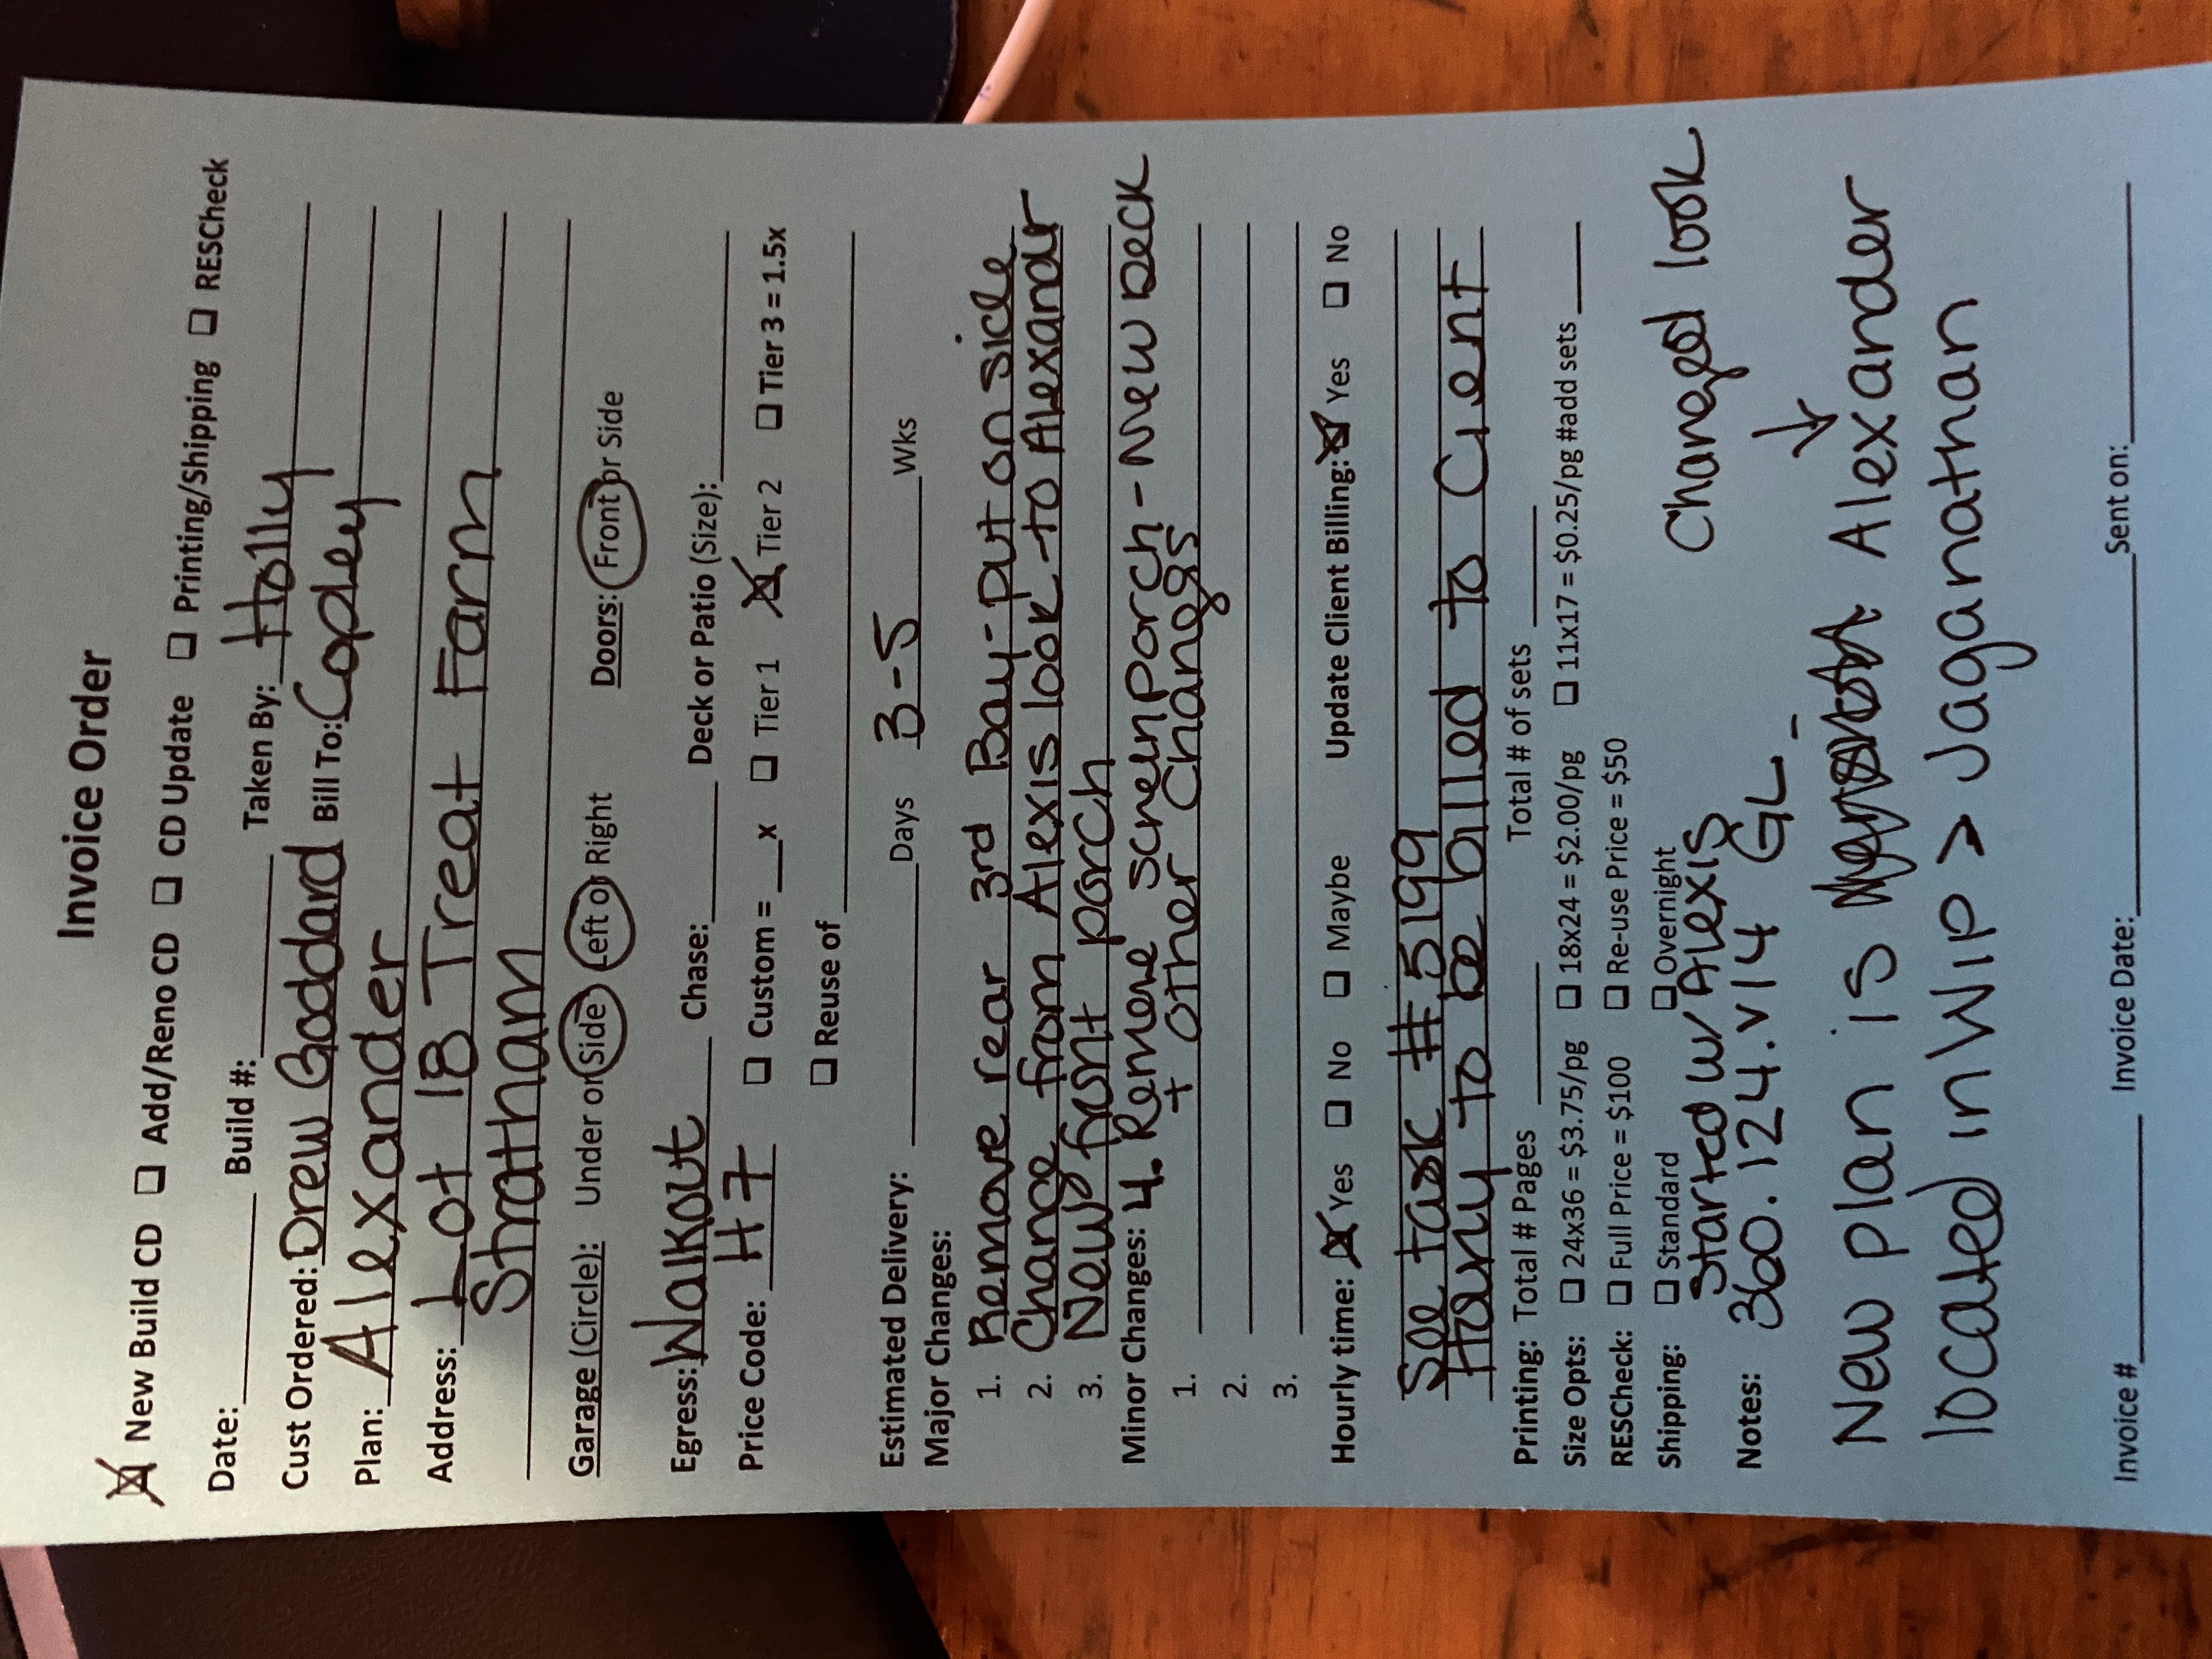 Invoice Order
☒ New Build CD ☐ Add/Reno CD ☐ CD Update ☐ Printing/Shipping ☐ RESCheck
Date:________ Build #:________ Taken By: Holly
Cust Ordered: Drew Goddard Bill To: Copley
Plan: Alexander
Address: Lot 18 Treat Farm
Stratham
Garage (Circle): Under or Side Left or Right Doors: Front or Side
Egress: Walkout Chase:________ Deck or Patio (Size):________
Price Code: H7 ☐ Custom = __x ☐ Tier 1 ☒ Tier 2 ☐ Tier 3 = 1.5x
☐ Reuse of ________
Estimated Delivery: ________Days 3-5 Wks
Major Changes:
1. Remove rear 3rd Bay - put on side
2. Change from Alexis look to Alexandr
3. New front porch
Minor Changes: 4. Remove screenporch - New Deck
+ other changes
1.
2.
3.
Hourly time: ☒ Yes ☐ No ☐ Maybe Update Client Billing: ☒ Yes ☐ No
See task #5199
Hany to be billed to Client
Printing: Total # Pages ______ Total # of sets ______
Size Opts: ☐ 24x36 = $3.75/pg ☐ 18x24 = $2.00/pg ☐ 11x17 = $0.25/pg #add sets ____
RESCheck: ☐ Full Price = $100 ☐ Re-use Price = $50
Shipping: ☐ Standard ☐ Overnight
Started w/ Alexis Changed look
Notes: 360.124.v14 GL - ↓
New plan is Alexander
located in WIP > Jaganathan
Invoice #________ Invoice Date:________ Sent on:________